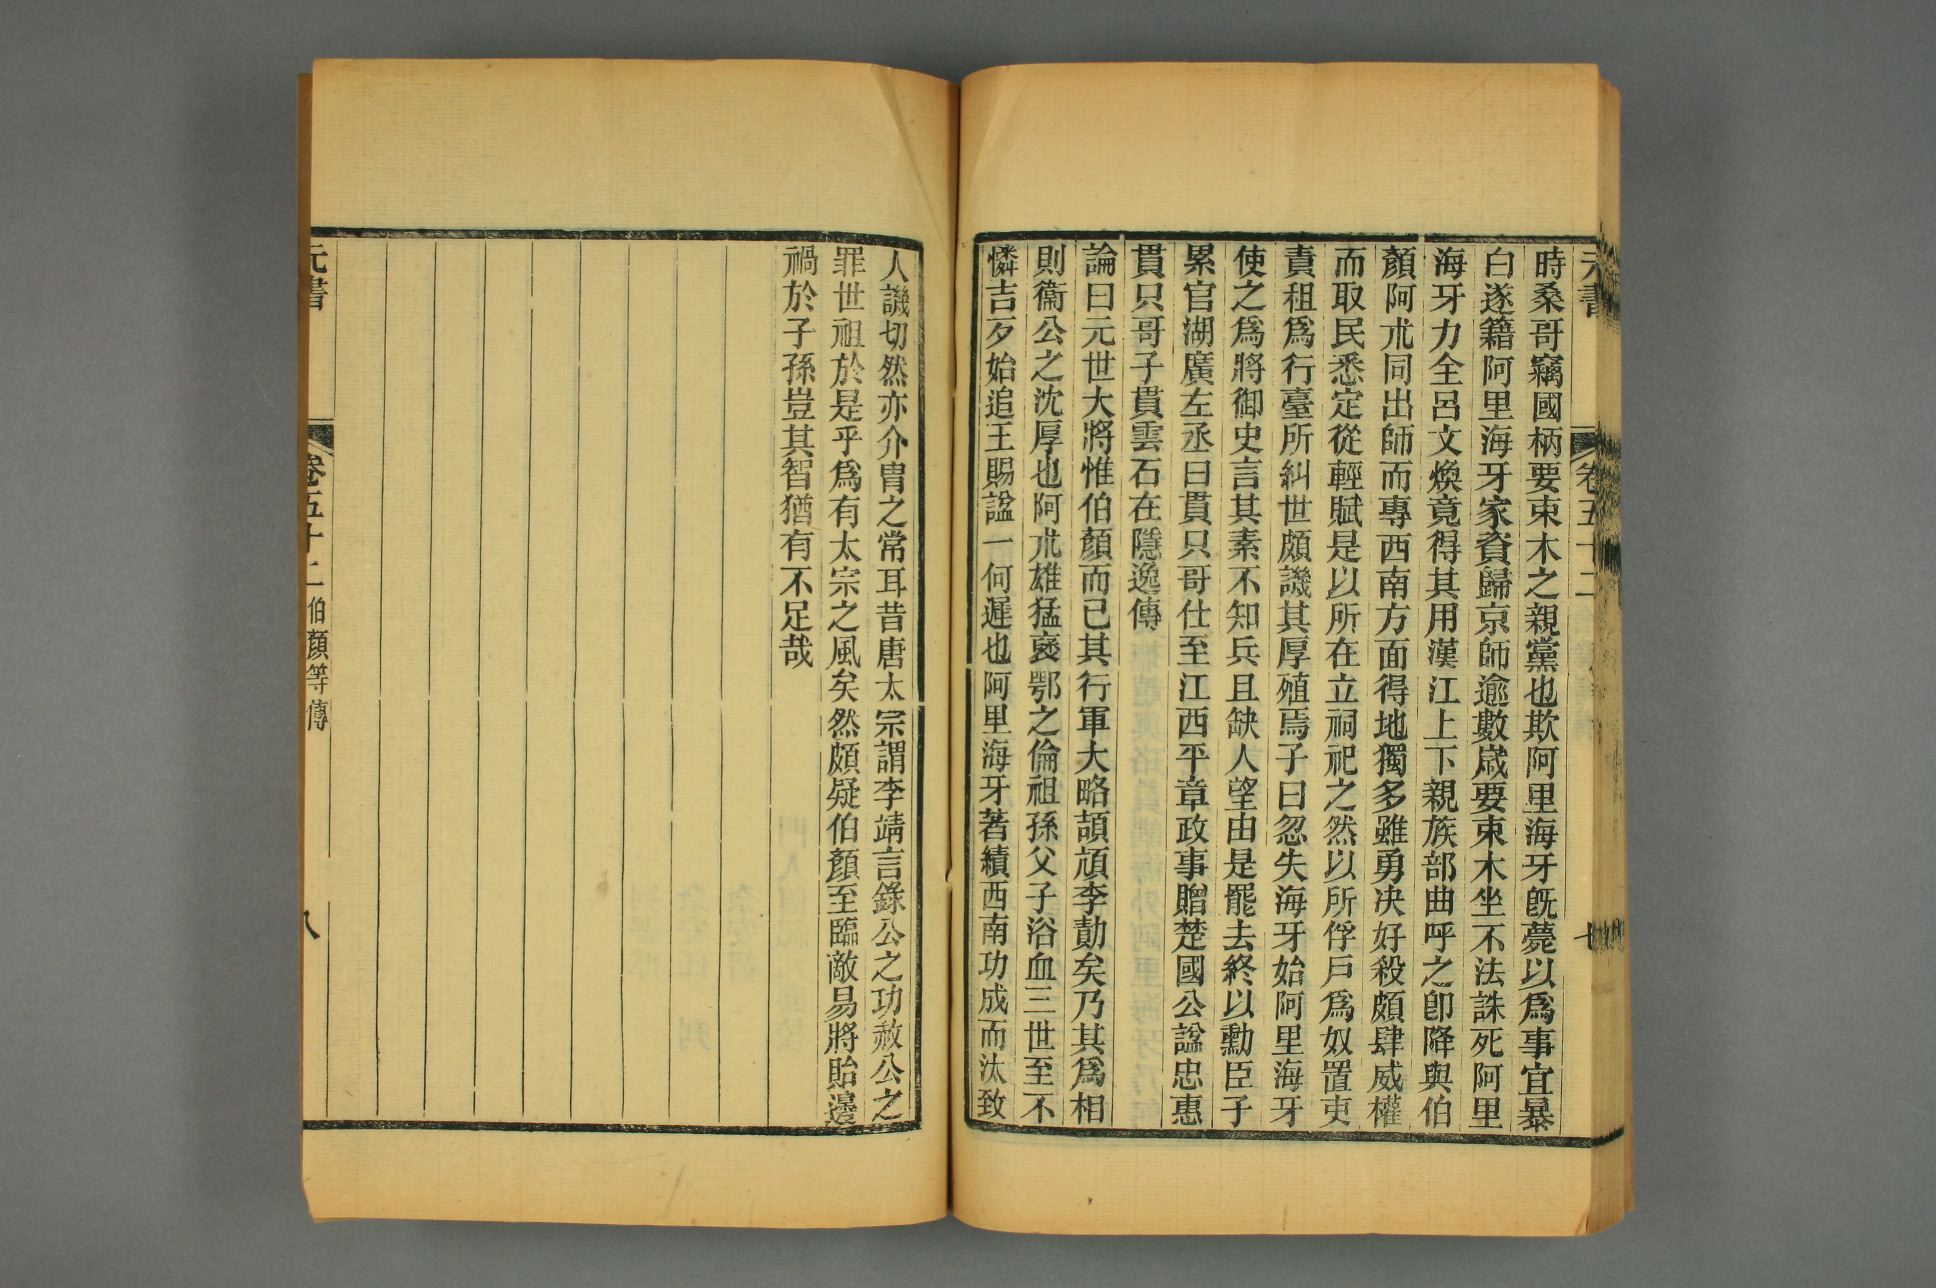 元書
卷五十二
七
時桑哥竊國柄要束木之親黨也欺阿里海牙旣薨以爲事宜暴
白遂籍阿里海牙家資歸京師逾數歲要束木坐不法誅死阿里
海牙力全呂文煥竟得其用漢江上下親族部曲呼之卽降與伯
顏阿朮同出師而專西南方面得地獨多雖勇決好殺頗肆威權
而取民悉定從輕賦是以所在立祠祀之然以所俘戶爲奴置吏
責租爲行臺所糾世頗譏其厚殖焉子曰忽失海牙始阿里海牙
使之爲將御史言其素不知兵且缺人望由是罷去終以勳臣子
累官湖廣左丞曰貫只哥仕至江西平章政事贈楚國公諡忠惠
貫只哥子貫雲石在隱逸傳
論曰元世大將惟伯顏而已其行軍大略頡頏李勣矣乃其爲相
則衞公之沈厚也阿朮雄猛褒鄂之倫祖孫父子浴血三世至不
憐吉歹始追王賜諡一何遲也阿里海牙著績西南功成而汰致
人譏切然亦介冑之常耳昔唐太宗謂李靖言錄公之功赦公之
罪世祖於是乎爲有太宗之風矣然頗疑伯顏至臨敵易將貽邊
禍於子孫豈其智猶有不足哉
元書
卷五十二
伯顏等傳
八